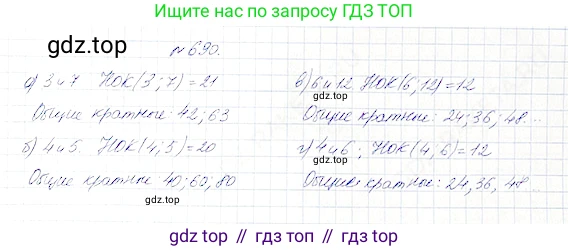 Ищите нас по запросу ГДЗ ТОП
gdz.top
№690.
а) 3 и 7 НОК(3; 7)=21
Общие кратные: 42; 63
б) 4 и 5. НОК(4; 5)=20
Общие кратные 40; 60; 80
в) 6 и 12 НОК(6; 12)=12
gdz.top
Общие кратные: 24; 36; 48...
г) 4 и 6; НОК(4; 6)=12
gdz.top
Общие кратные: 24, 36, 48...
gdz.top // гдз топ // гдз.top